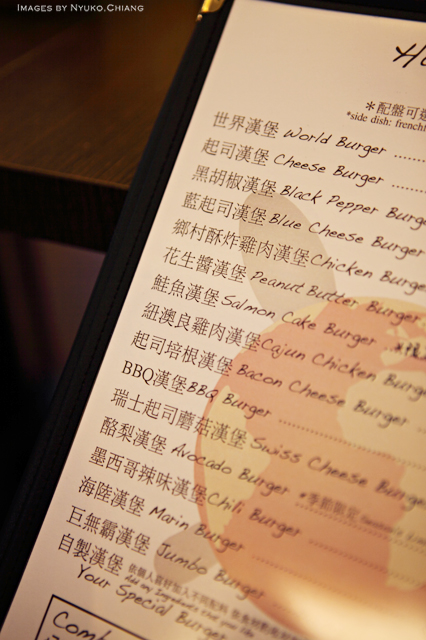 IMAGES BY NYUKO.CHIANG
*配盤可選
*side dish: french
世界漢堡 World Burger
起司漢堡 Cheese Burger
黑胡椒漢堡 Black Pepper Burge
藍起司漢堡 Blue Cheese Burger
鄉村酥炸雞肉漢堡 Chicken Burge
花生醬漢堡 Peanut Butter Burger
鮭魚漢堡 Salmon Cake Burger
紐澳良雞肉漢堡 Cajun Chicken Burge
起司培根漢堡 Bacon Cheese Burger
BBQ漢堡 BBQ Burger
瑞士起司蘑菇漢堡 Swiss Cheese Burge
酪梨漢堡 Avocado Burger *季節限定
墨西哥辣味漢堡 Chili Burger
海陸漢堡 Marin Burger
巨無霸漢堡 Jumbo Burger
自製漢堡 依個人喜好加入不同配料
Your Special Burger
Comb